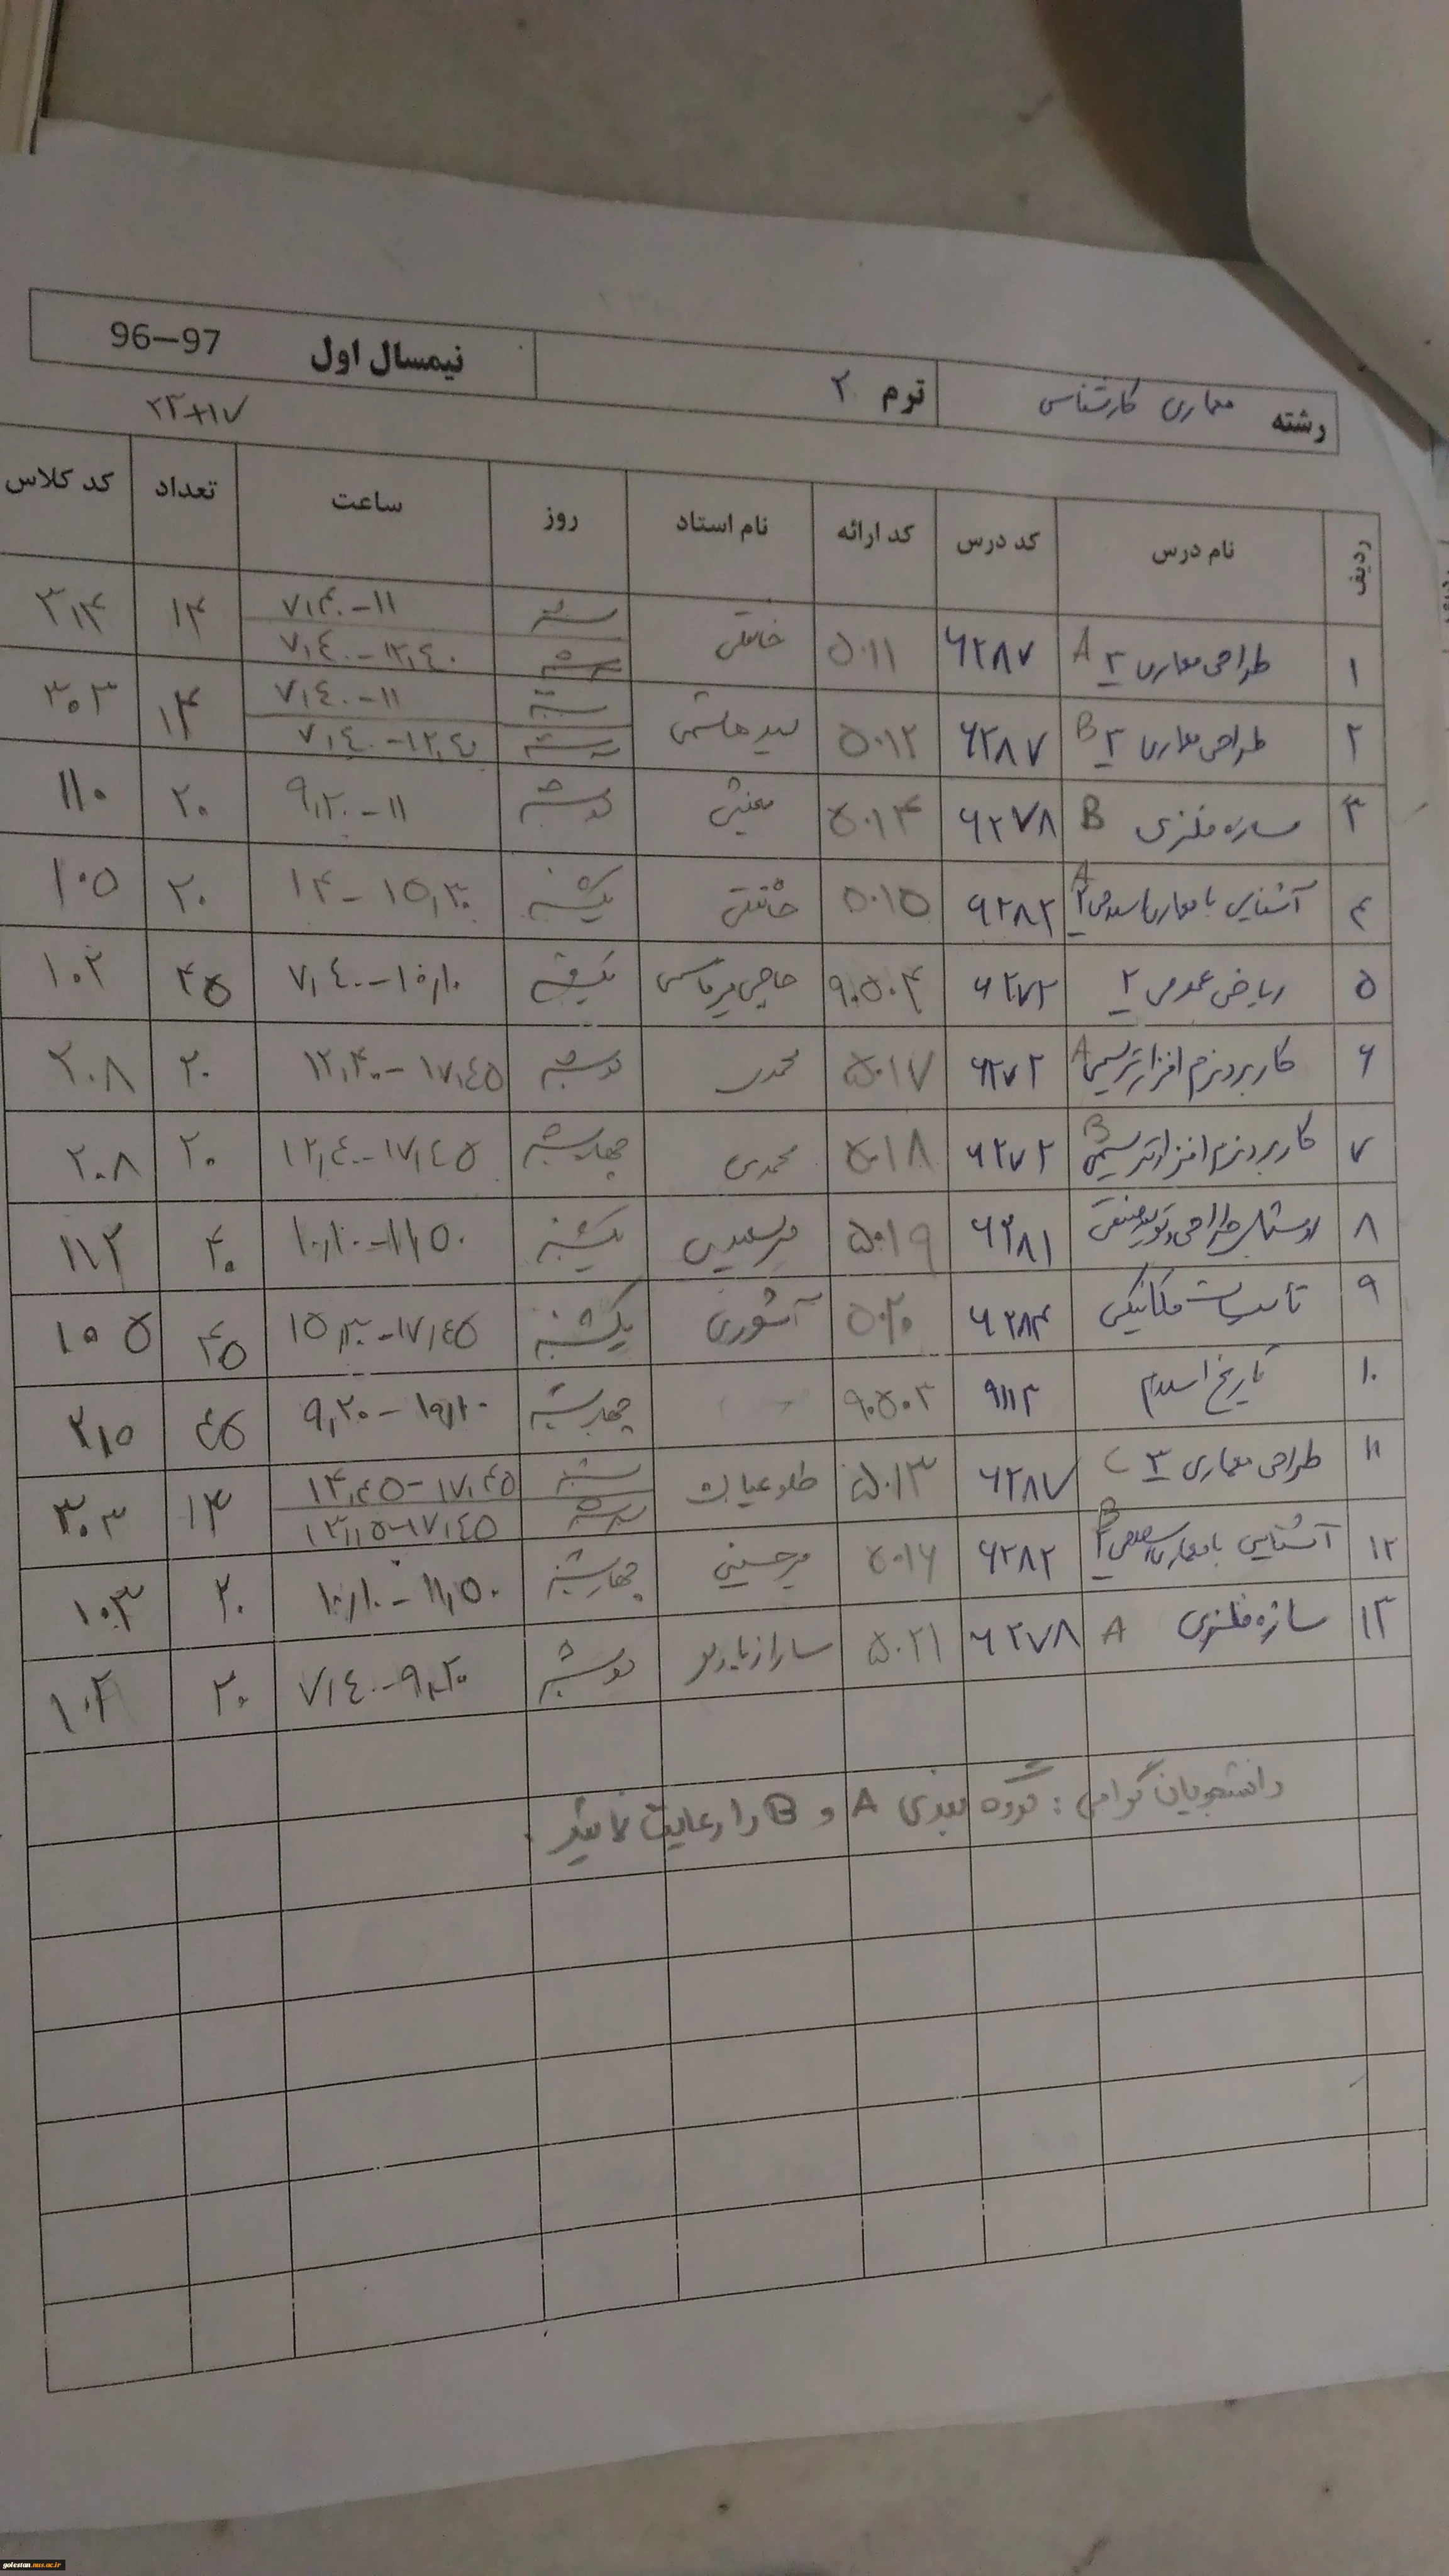 رشته معماری کارشناسی ترم ۲ نیمسال اول 96-97
۲۳+۱۷
ردیف نام درس کد درس کد ارائه نام استاد روز ساعت تعداد کد کلاس
۱ طراحی معماری ۳ A ۶۲۸۷ ۵۰۱۱ شنبه ۷,۴۰-۱۱ ۱۴ ۳۱۴
سه شنبه ۷,۴۰-۱۲,۴۰
۲ طراحی معماری ۳ B ۶۲۸۷ ۵۰۱۲ سیدهاشمی شنبه ۷,۴۰-۱۱ ۱۴ ۳۰۳
سه شنبه ۷,۴۰-۱۲,۴۰
۳ سازه فلزی B ۶۲۷۸ ۵۰۱۴ دوشنبه ۹,۲۰-۱۱ ۲۰ ۱۱۰
۴ آشنایی با معماری اسلامی ۲ A ۶۲۸۲ ۵۰۱۵ یکشنبه ۱۴-۱۵,۳۰ ۲۰ ۱۰۵
۵ ریاضی عمومی ۲ ۶۲۷۳ ۹۰۵۰۴ حاجی میرقاسمی یکشنبه ۷,۴۰-۱۰,۱۰ ۴۵ ۱۰۲
۶ کاربرد نرم افزار ترسیمی A ۶۲۷۲ ۵۰۱۷ محمدی دوشنبه ۱۲,۴۰-۱۷,۴۵ ۲۰ ۲۰۸
۷ کاربرد نرم افزار ترسیمی B ۶۲۷۲ ۵۰۱۸ محمدی چهارشنبه ۱۲,۴۰-۱۷,۴۵ ۲۰ ۲۰۸
۸ ۶۲۸۱ ۵۰۱۹ میرسعیدی یکشنبه ۱۰,۱۰-۱۱,۵۰ ۴۰ ۱۱۲
۹ تاسیسات مکانیکی ۶۲۸۴ ۵۰۲۰ آشوری یکشنبه ۱۵,۳۰-۱۷,۴۵ ۴۵ ۱۰۵
۱۰ تاریخ اسلام ۹۱۱۳ ۹۰۵۰۳ چهارشنبه ۹,۲۰-۱۰,۱۰ ۴۵ ۲۱۵
۱۱ طراحی معماری ۳ C ۶۲۸۷ ۵۰۱۳ شنبه ۱۴,۴۵-۱۷,۴۵ ۱۴ ۳۰۳
سه شنبه ۱۳,۱۵-۱۷,۴۵
۱۲ آشنایی با معماری اسلامی ۲ B ۶۲۸۲ ۵۰۱۶ میرحسینی چهارشنبه ۱۰,۱۰-۱۱,۵۰ ۲۰ ۱۰۳
۱۳ سازه فلزی A ۶۲۷۸ ۵۰۲۱ دوشنبه ۷,۴۰-۹,۲۰ ۲۰ ۱۰۲
دانشجویان گرامی : گروه بندی A و B را رعایت نمائید .
golestan.nus.ac.ir